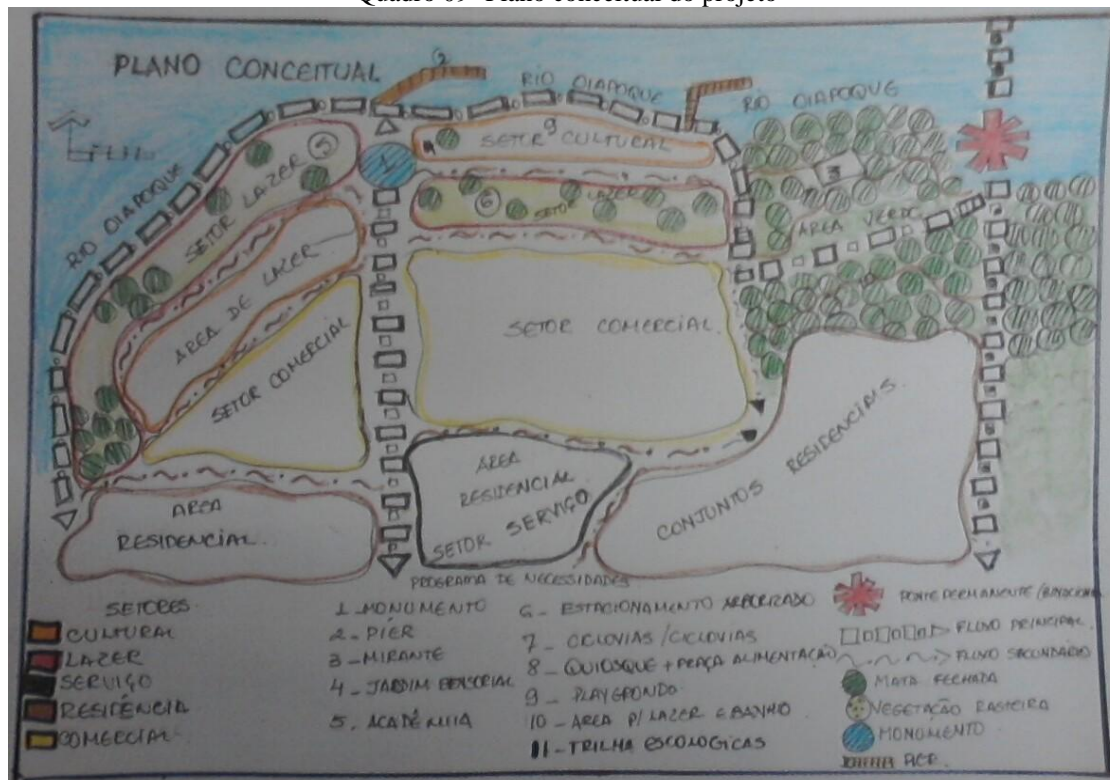 Quadro 09- Plano conceitual do projeto
PLANO CONCEITUAL
2
RIO OIAPOQUE
RIO OIAPOQUE
RIO OIAPOQUE
5
SETOR LAZER
1
9
SETOR CULTURAL
6
SETOR LAZER
3
AREA VERDE
AREA DE LAZER
SETOR COMERCIAL
SETOR COMERCIAL
CONJUNTOS RESIDENCIAIS.
AREA
RESIDENCIAL.
AREA
RESIDENCIAL
SETOR SERVIÇO
PROGRAMA DE NECESSIDADES
SETORES
CULTURAL
LAZER
SERVIÇO
RESIDÊNCIA
COMERCIAL
1 - MONUMENTO
2 - PÍER
3 - MIRANTE
4 - JARDIM SENSORIAL
5 - ACADÊMIA
6 - ESTACIONAMENTO ARBORIZADO
7 - CICLOVIAS/CICLOVIAS
8 - QUIOSQUE + PRAÇA ALIMENTAÇÃO
9 - PLAYGRONDO
10 - AREA P/ LAZER E BANHO
11 - TRILHA ESCOLOGICAS
PONTE PERMANENTE
FLUXO PRINCIPAL.
FLUXO SECUNDÁRIO
MATA FECHADA
VEGETAÇÃO RASTEIRA
MONUMENTO
PIER.